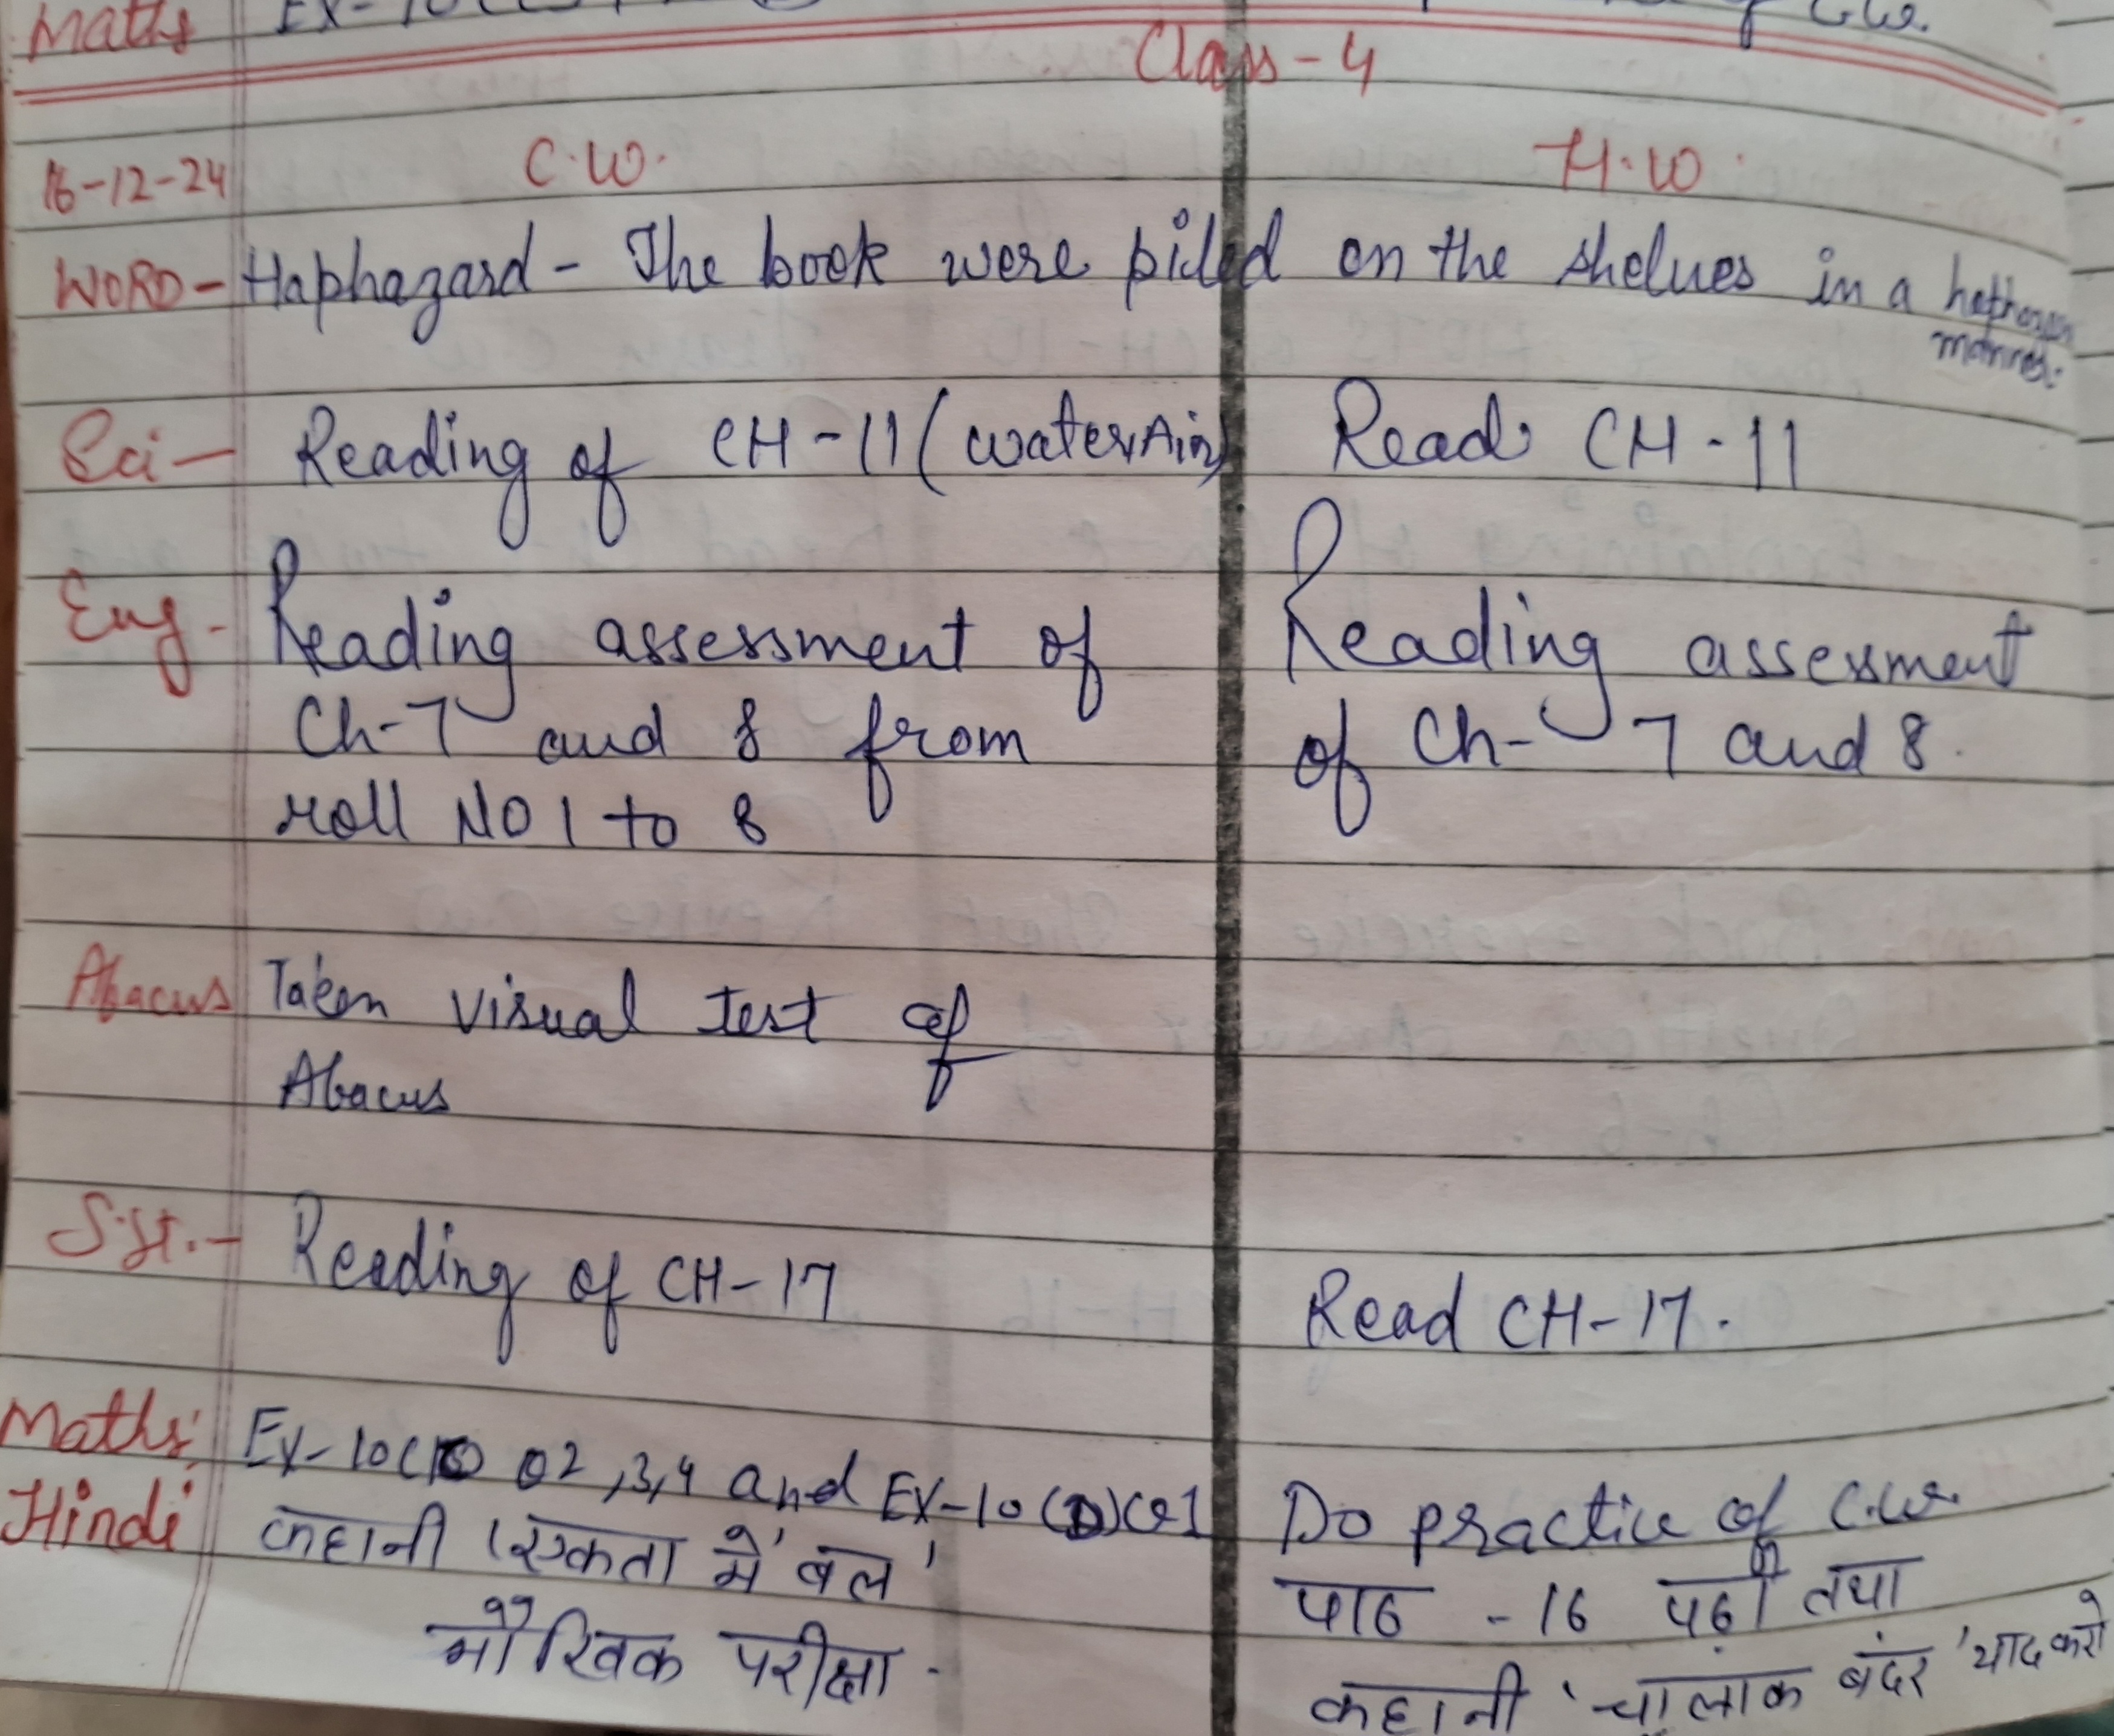 Maths Ex-10
Class-4
16-12-24 C.W. H.W.
WORD- Haphazard - The book were piled on the shelves in a
Sci- Reading of CH-11 (water Air) Read CH-11
Eng- Reading assessment of Reading assessment
Ch-7 and 8 from of Ch-7 and 8.
roll NO 1 to 8
Abacus Taken visual test of
Abacus
S.St.- Reading of CH-17 Read CH-17.
Maths: Ex-10 Q2,3,4 and EX-10(D)Q1 Do practice of C.W.
Hindi कहानी 'एकता में बल' पाठ - 16 पढ़ो तथा
मौखिक परीक्षा. कहानी 'चालाक बंदर' याद करो